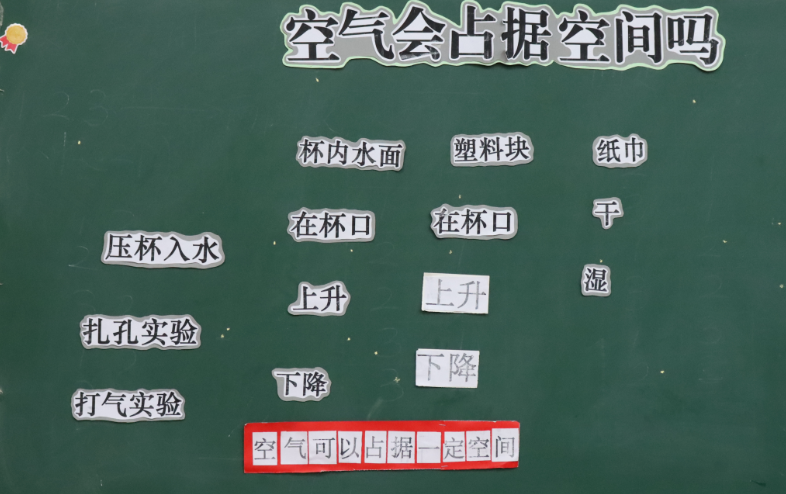 空气会占据空间吗
杯内水面 塑料块 纸巾
压杯入水 在杯口 在杯口 干
扎孔实验 上升 上升 湿
打气实验 下降 下降
空气可以占据一定空间